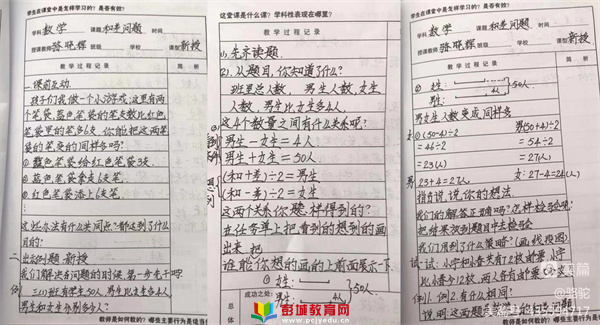 学生在课堂中是怎样学习的？是否有效？
学科 数学 课题 和差问题 时间
授课教师 张晓辉 班级 学校 课型 新授
教学过程记录 简析
一.课前互动
孩子们我做一个小游戏:这里有两
个笔袋,蓝色笔袋的笔支数比红色
笔袋里的笔多6支.你能把这两笔
袋的笔变的同样多吗?
① 蓝色笔袋给红色笔袋3支.
② 蓝色笔袋拿走6支笔.
③ 红色笔袋添上6支笔.
这些办法有什么共同点?都达到了什么
目的?
二.出示例题.新授
我们解决问题的时候,第一步先干吗?
例 三(1)班有学生50人,男生比女生多4人
男生和女生分别多少人?
教师是如何教的?哪些主要行为是适当
这堂课是什么课？学科性表现在哪里？
教学过程记录 简析
①.先齐读题.
②.从题目,你知道了什么?
班里总人数,男生人数,女生
人数,男生比女生多4人
这4个数量之间有什么关系呢?
男生-女生=4人
男生+女生=50人
(和+差)÷2=男生
(和-差)÷2=女生
这两个关系你是怎样得到的?
在任务单上把看到的想到的画
出来.把
谁能你想的画的上前面展示一下.
① 女生:
男生: 4人 }50人.
成功之处:
总体
彭城教育网
www.pcjy.edu.cn
学生在课堂中是怎样学习的？是否有效？
学科 数学 课题 和差问题 时间
授课教师 张晓辉 班级 学校 课型 新授
教学过程记录 简析
② 女生: }50人
男:
男女生人数变成同样多
女:①(50-4)÷2 男(50+4)÷2
=46÷2 =54÷2
=23(人) =27(人)
男 23+4=27人. 女:27-4=24(人)
指有说说你的想法
我们的解答正确吗?怎样检验呢?
把结果放到题目中去检验
我们用到了什么策略?(画线段图)
试一试:
例1.例2.有什么相同?
教师是如何教的?哪些主要行为是适